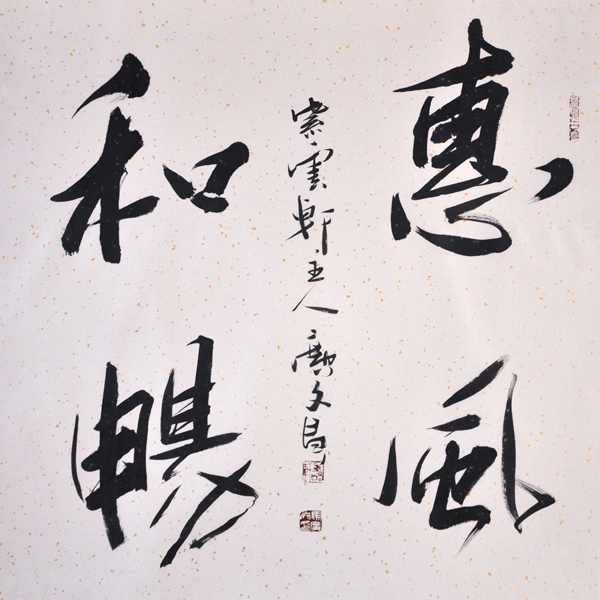 惠風
和暢
紫雲軒主人文昌